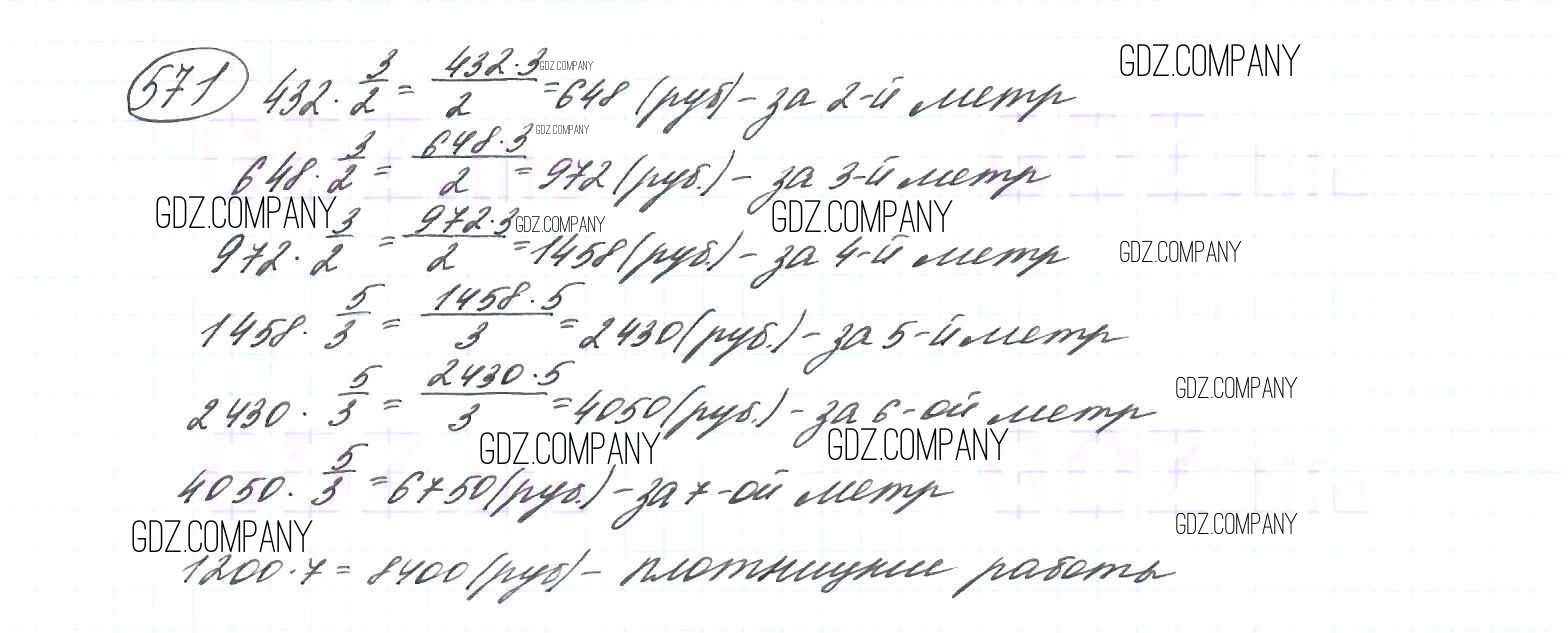 GDZ.COMPANY
571 432 · 3/2 = 432·3/2 = 648 (руб) - за 2-й метр
GDZ.COMPANY
648 · 3/2 = 648·3/2 = 972 (руб.) - за 3-й метр
GDZ.COMPANY
GDZ.COMPANY GDZ.COMPANY
972 · 3/2 = 972·3/2 = 1458 (руб.) - за 4-й метр
GDZ.COMPANY GDZ.COMPANY
1458 · 5/3 = 1458·5/3 = 2430 (руб.) - за 5-й метр
2430 · 5/3 = 2430·5/3 = 4050 (руб.) - за 6-ой метр
GDZ.COMPANY
GDZ.COMPANY GDZ.COMPANY
4050 · 5/3 = 6750 (руб.) - за 7-ой метр
GDZ.COMPANY GDZ.COMPANY
1200·7 = 8400 (руб) - плотницкие работы